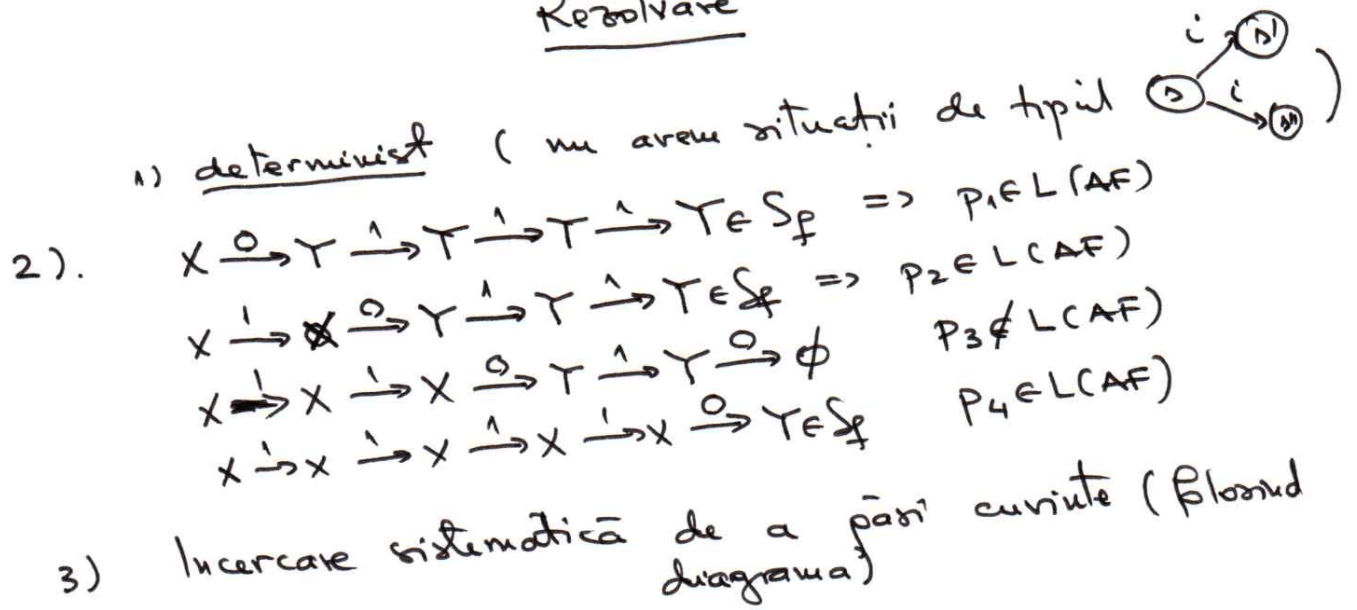 Rezolvare
1) determinist ( nu avem situații de tipul s i s' i s'' )
2). X 0→ Y 1→ Y 1→ Y 1→ Y ∈ Sf => p1 ∈ L(AF)
X 1→ X 0→ Y 1→ Y 1→ Y ∈ Sf => p2 ∈ L(AF)
X 1→ X 1→ X 0→ Y 1→ Y 0→ ϕ p3 ∉ L(AF)
X 1→ X 1→ X 1→ X 1→ X 0→ Y ∈ Sf p4 ∈ L(AF)
3) Incercare sistematică de a găsi cuvinte ( folosind
diagrama)